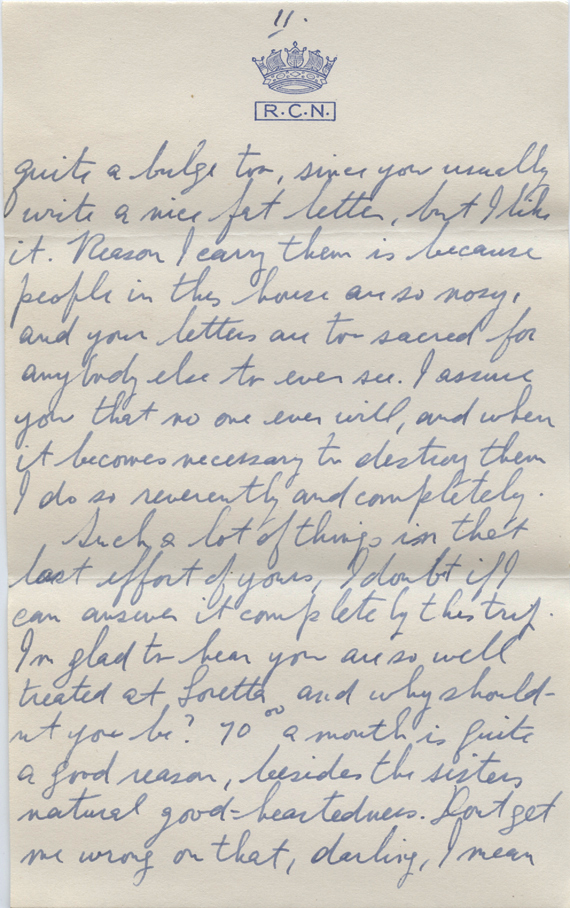 11.
R.C.N.
quite a bulge too, since you usually
write a nice fat letter, but I like
it. Reason I carry them is because
people in this house are so nosy,
and your letters are too sacred for
anybody else to ever see. I assure
you that no one ever will, and when
it becomes necessary to destroy them
I do so reverently and completely.
Such a lot of things in that
last effort of yours, I doubt if I
can answer it completely this trip.
I'm glad to hear you are so well
treated at Loretta and why should-
nt you be? 70 00 a month is quite
a good reason, besides the sisters
natural good-heartedness. Dont get
me wrong on that, darling, I mean